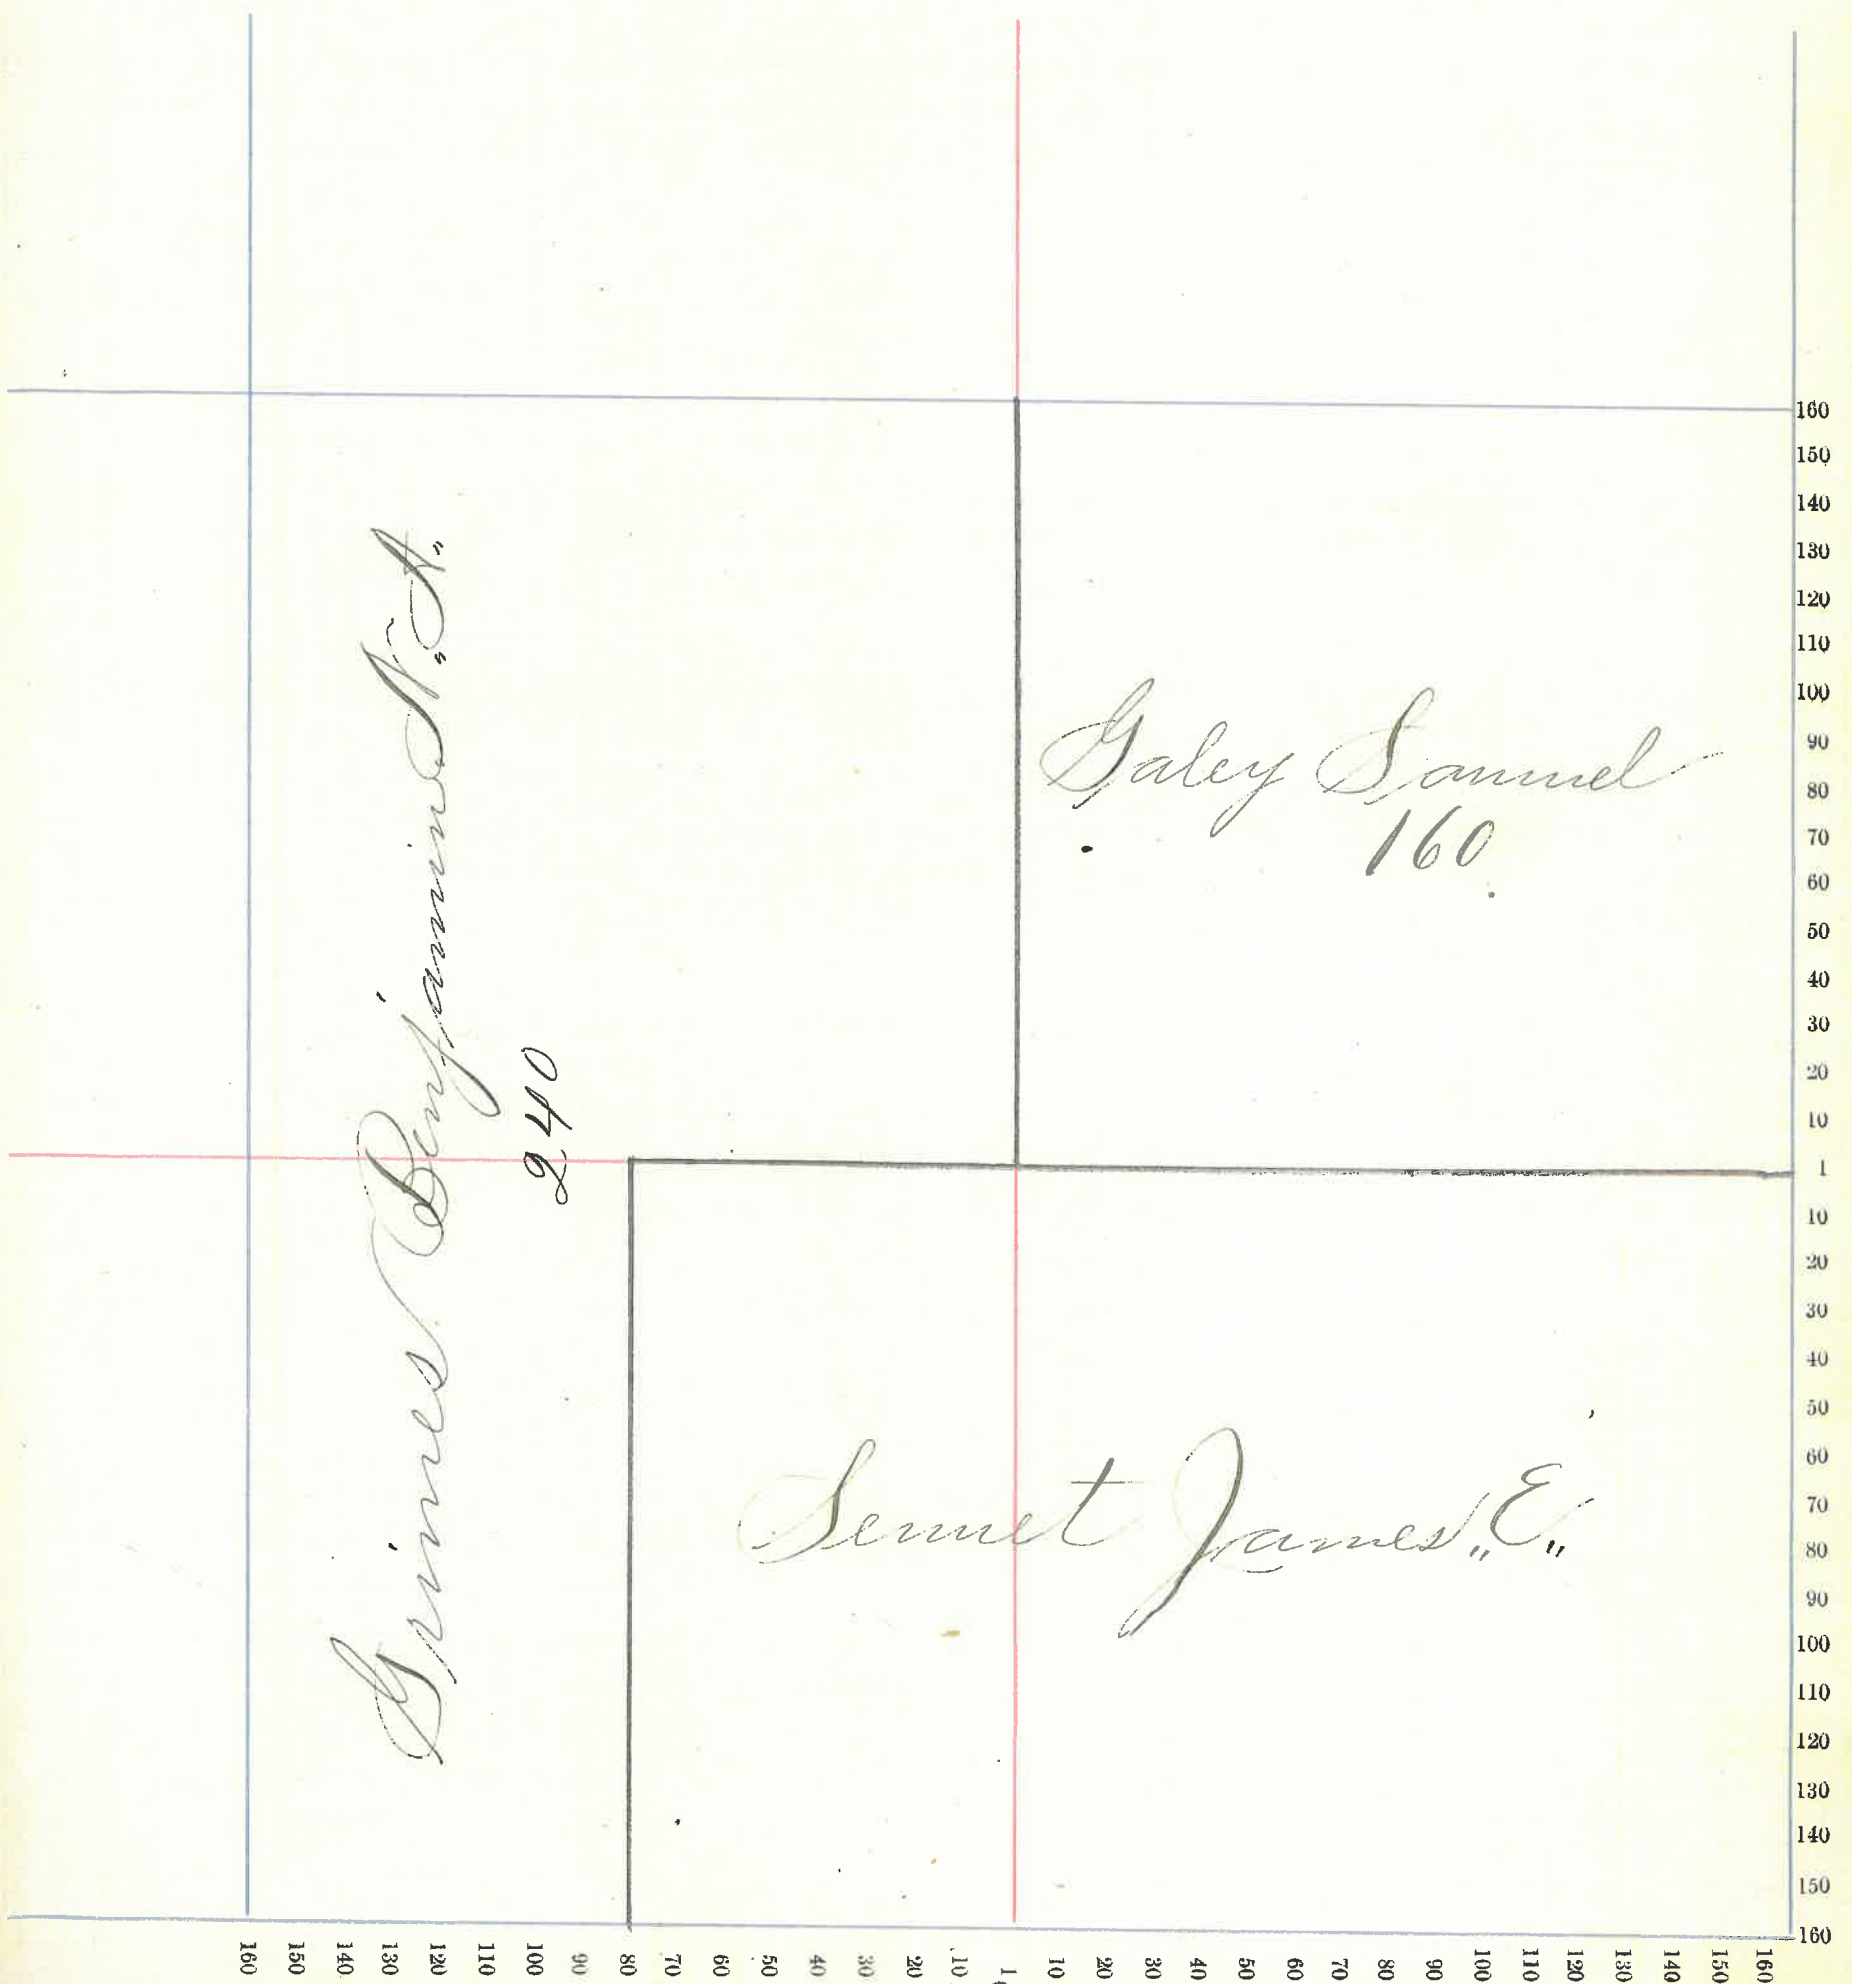 Grimes Benjamin "N." "A."
240
Galey Samuel
160
Sennet James "E"
160
150
140
130
120
110
100
90
80
70
60
50
40
30
20
10
1
10
20
30
40
50
60
70
80
90
100
110
120
130
140
150
160
160 150 140 130 120 110 100 90 80 70 60 50 40 30 20 10 1 10 20 30 40 50 60 70 80 90 100 110 120 130 140 150 160